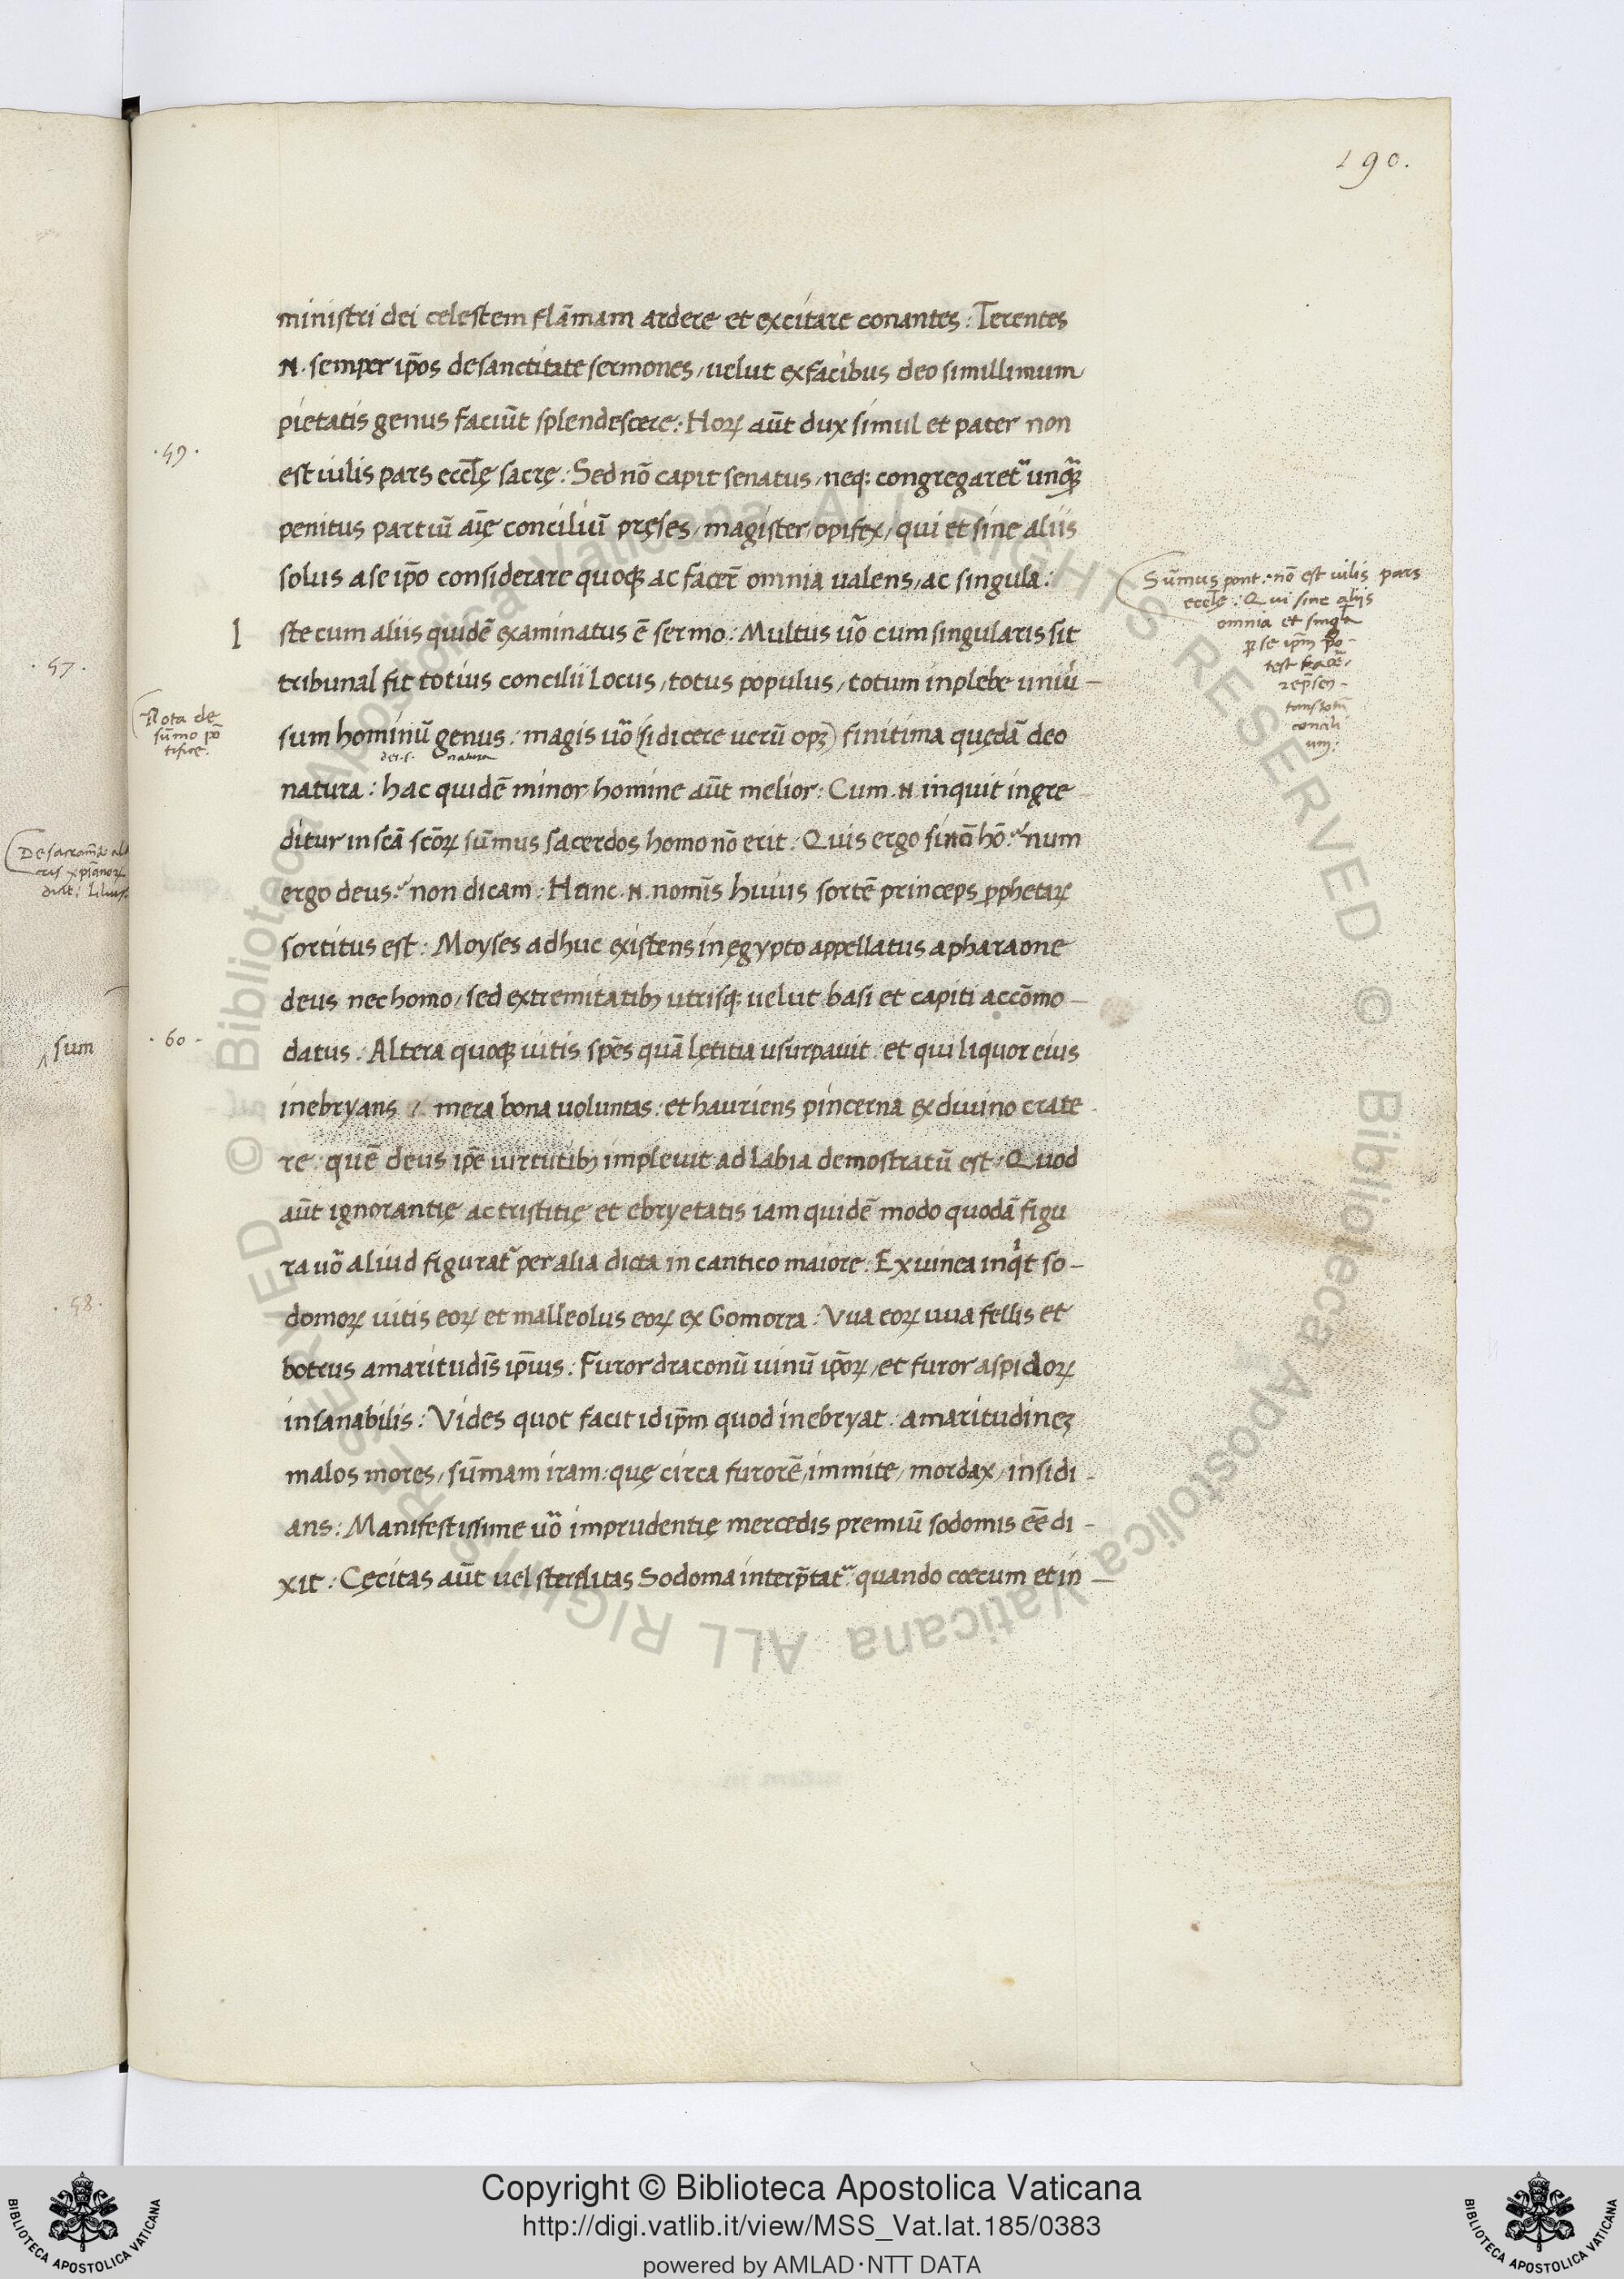 190.
ministri dei celestem flāmam ardere et excitare conantes: Terentes
.N. semper ip̄os de sanctitate sermones, uelut ex facibus deo simillimum
pietatis genus faciūt splendescere: Horꝝ aūt dux simul et pater non
.59.
est uilis pars eccl̄ę sacrę: Sed nō capit senatus, neq; congregaret᷑ unq̄ꝫ
penitus partiū aīę conciliū pręses, magister, opifex, qui et sine aliis
solus a se ip̄o considerare quoqꝫ ac facer̄ omnia ualens, ac singula:
Sūmus pont: nō est uilis pars
eccl̄ę: Qui sine aliis
omnia et singla
ꝑ se ip̄m po-
test facē,
rep̄sen-
tans totū
concili
um:
I ste cum aliis quidē examinatus ē sermo: Multus ūo cum singularis sit
tribunal fit totius concilii locus, totus populus, totum in plebe uniu̇-
Nota de
sūmo pō
tifice:
sum hominū genus: magis ūo (si dicere uerū opꝫ) finitima quędā deo
dei.s. natura
natura: hac quidē minor homine aūt melior: Cum .N. inquit ingre
ditur in scā scōꝝ sūmus sacerdos homo nō erit: Quis ergo si nō hō? num
ergo deus? non dicam: Hanc .N. nomīs huius sortē princeps ꝓphetaꝝ
sortitus est: Moyses adhuc existens in ęgypto appellatus a pharaone
deus nec homo, sed extremitatibꝫ utrisq; uelut basi et capiti accōmo-
.60-
datus: Altera quoqꝫ uitis spēs quā lętitia usurpauit: et qui liquor eius
inebryans, mera bona uoluntas: et hauriens pincerna ex diuino crate-
re: quē deus ip̄e uirtutibꝫ impleuit ad labia demostratū est: Quod
aūt ignorantię ac tristitię et ebryetatis iam quidē modo quodā figu
ra ūo aliud figurat᷑ per alia dicta in cantico maiore: Ex uinea inqͥt so-
domoꝝ uitis eoꝝ et malleolus eoꝝ ex Gomorra: Vua eoꝝ uua fellis et
botrus amaritudīs ip̄ius: Furor draconū uinū ip̄oꝝ, et furor aspidoꝝ
insanabilis: Vides quot facit id ip̄m quod inebryat: amaritudineꝫ
malos mores, sūmam iram: quę circa furorē, immite, mordax, insidi-
ans: Manifestissime ūo imprudentię mercedis premiū sodomis eē di-
xit: Cęcitas aūt uel sterilitas Sodoma interp̄tat᷑: quando cœcum et in-
.57.
De sacram̄to al
ris xp̄ianoꝝ
sum
.58.
Copyright © Biblioteca Apostolica Vaticana
http://digi.vatlib.it/view/MSS_Vat.lat.185/0383
powered by AMLAD·NTT DATA
BIBLIOTECA APOSTOLICA VATICANA
BIBLIOTECA APOSTOLICA VATICANA
© Biblioteca Apostolica Vaticana ALL RIGHTS RESERVED © Biblioteca Apostolica Vaticana ALL RIGHTS RESERVED